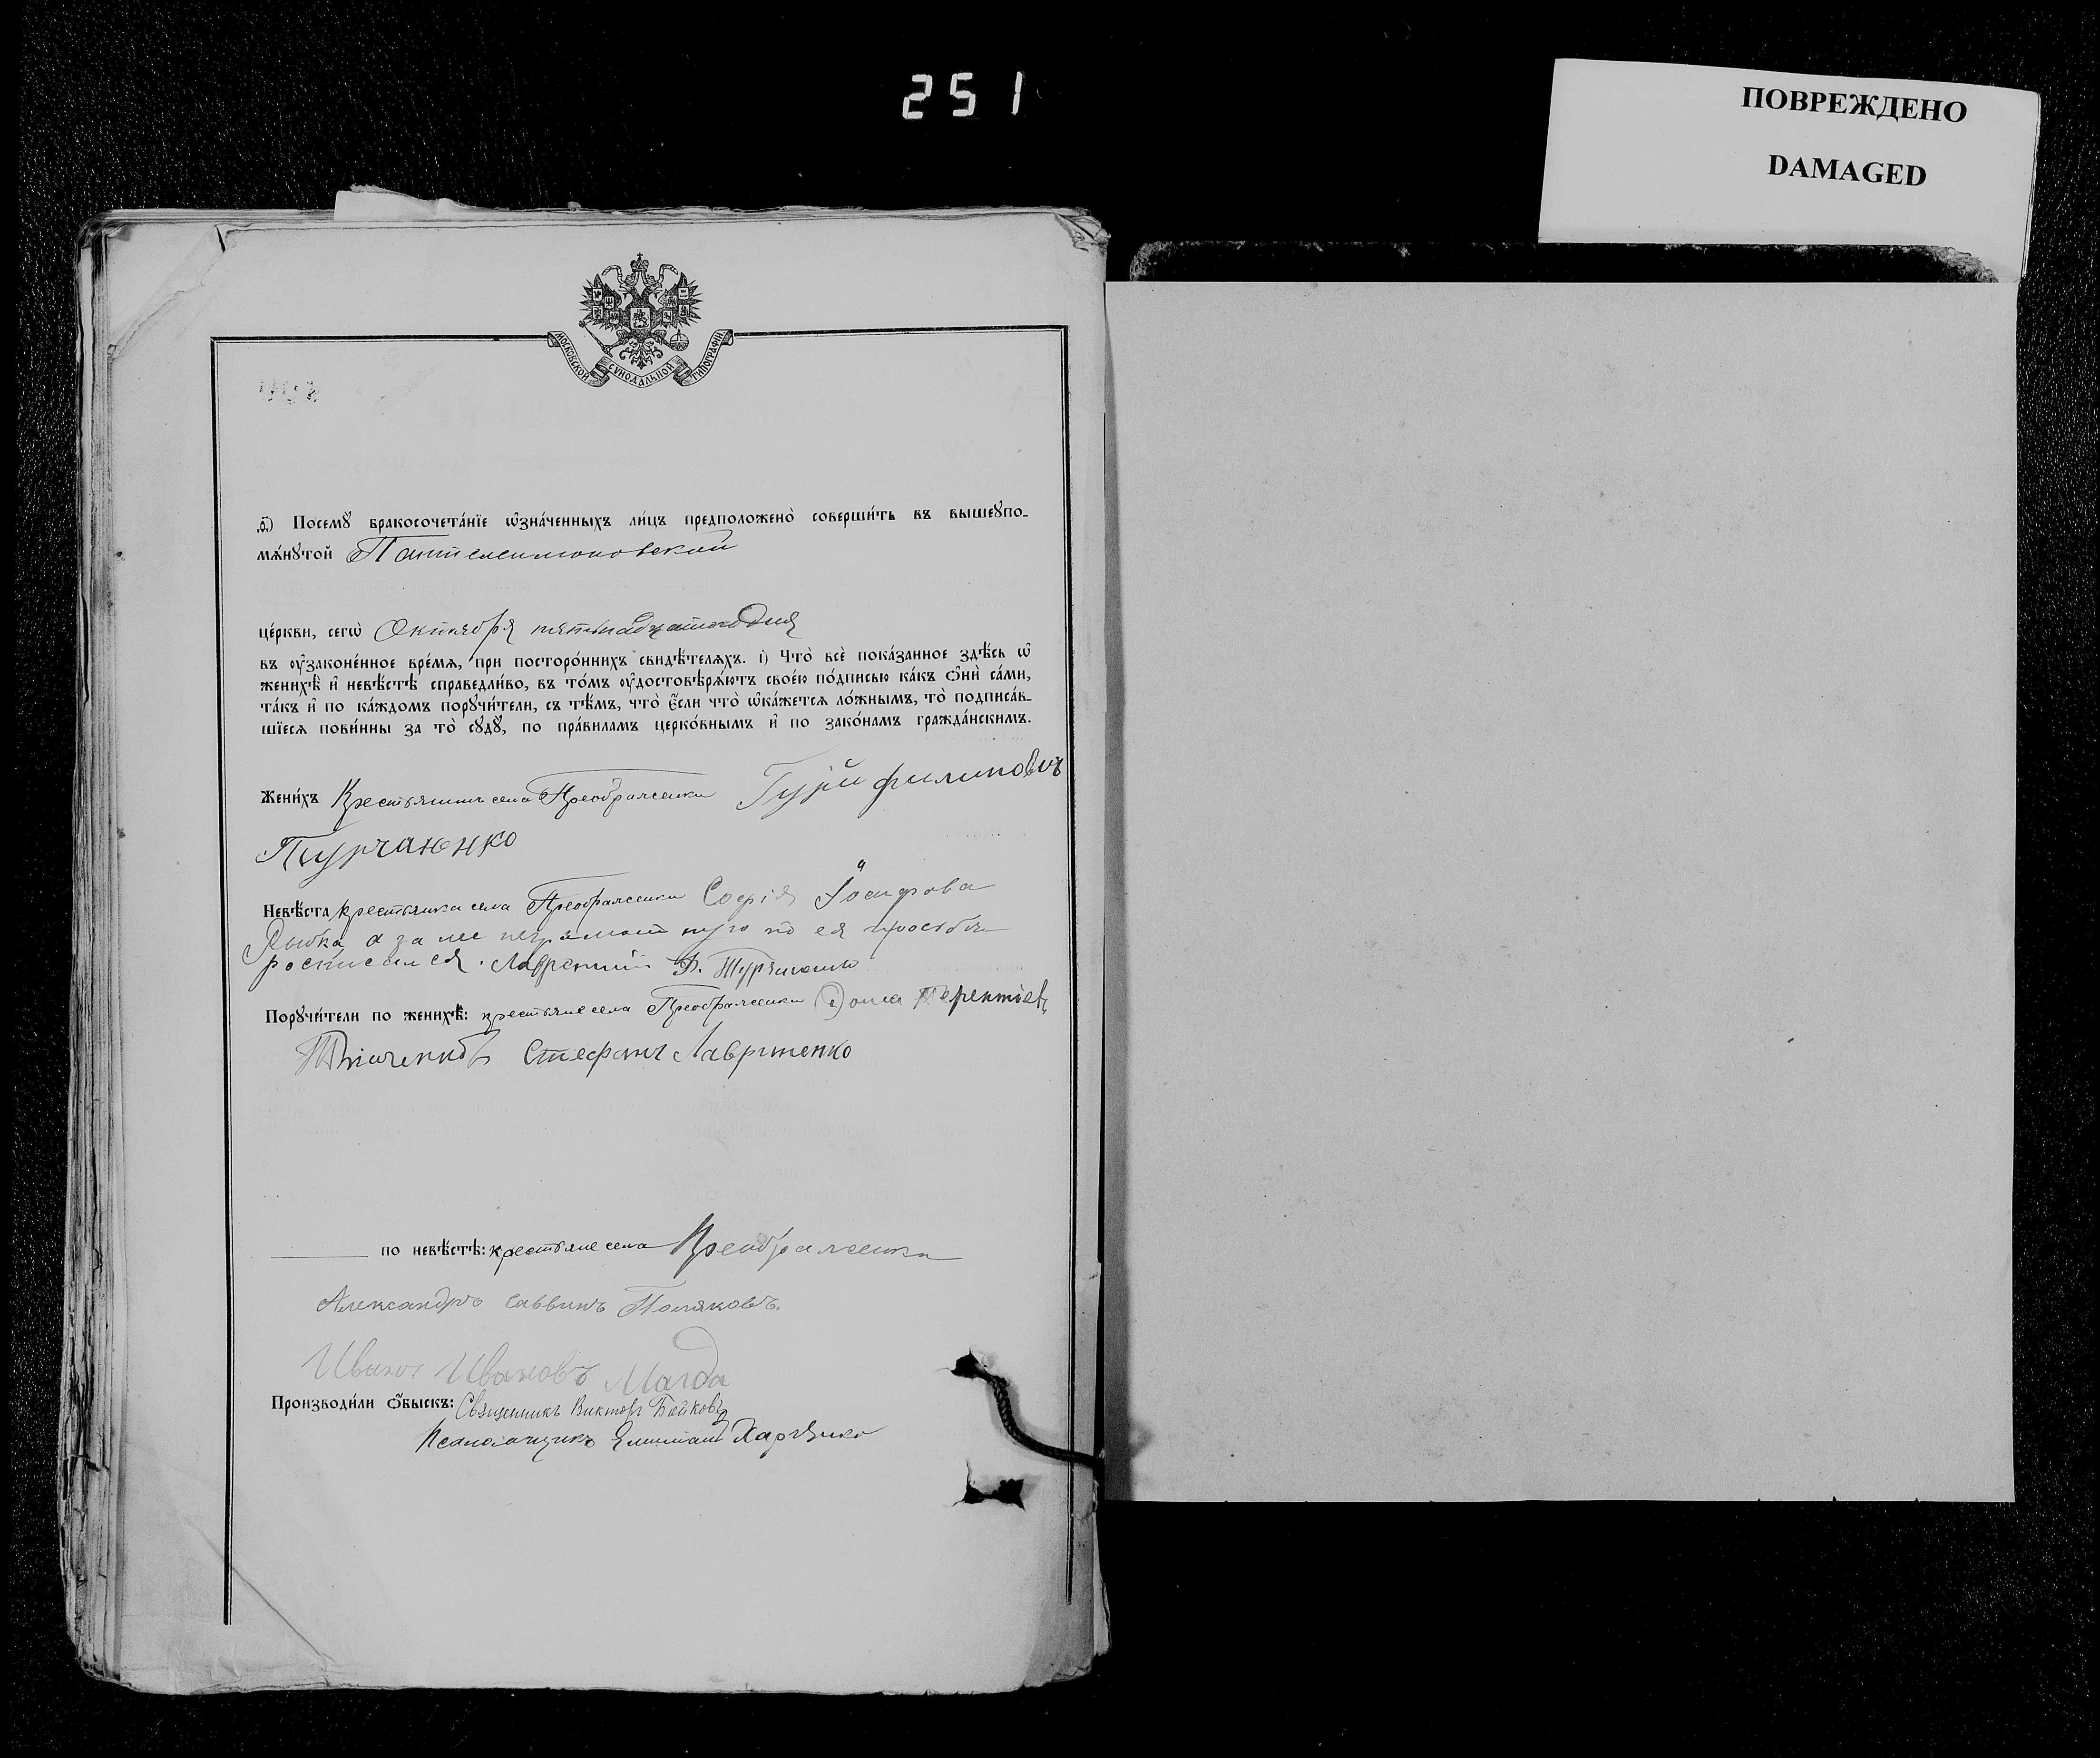 251
ПОВРЕЖДЕНО
DAMAGED
МОСКОВСКОЙ СѴНОДАЛЬНОЙ ТИПОГРАФІИ.
Посемꙋ̀ бракосочета́нїе ѡ҆зна́ченныхъ ли́цъ предположено̀ соверши́ть въ вышеꙋпо-
мѧ́нꙋтой Пантелеимоновской
це́ркви, сегѡ̀ Октября пятнадцатаго дня
въ ᲂу҆законе́нное вре́мѧ, при посторо́ннихъ свидѣ́телѧхъ. і҃) Что̀ всѐ пока́занное здѣ́сь ѡ҆
женихѣ̀ и҆ невѣ́стѣ справедли́во, въ то́мъ ᲂу҆достовѣрѧ́ютъ свое́ю по́дписью ка́къ ѻ҆нѝ са́ми,
та́къ и҆ по ка́ждомъ порꙋчи́тели, съ тѣ́мъ, что̀ є҆́сли что̀ ѡ҆ка́жетсѧ ло́жнымъ, то̀ подписа́в-
шїесѧ пови́нны за то̀ сꙋдꙋ̀, по пра́виламъ церко́внымъ и҆ по зако́намъ гражда́нскимъ.
Жени́хъ Крестьянинъ села Преображенки Гурій Филиповъ
Невѣ́ста крестьянка села Преображенки Софія Іосифова
Рыбка а за нее неграмотную по ея просьбѣ
росписался Лаврентий
Порꙋчи́тели по женихѣ̀: крестьяне села Преображенки Фома Терентіевъ
Стефанъ Лавриненко
по невѣ́стѣ: крестьяне села Преображенки
Александръ Саввинъ Поляковъ.
Иванъ Ивановъ Магда
Производи́ли ѻ҆́быскъ: Священникъ Викторъ Байковъ
Псаломщикъ Харченко